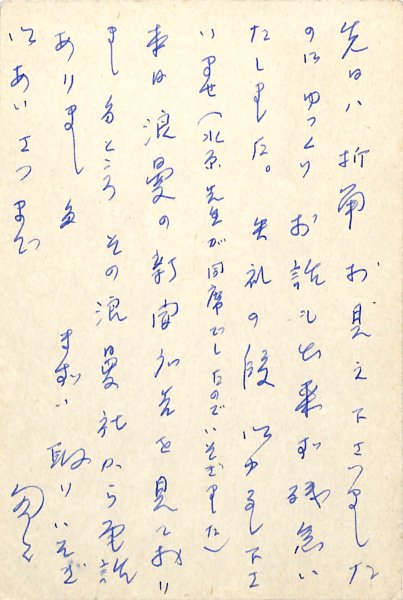 先日ハ折角お見え下さいました
のにゆっくりお話も出来ず残念い
たしました。失礼の段御ゆるし下さ
いませ(水原先生が同席でしたのでいそぎました)
本日浪曼の新聞広告を見ており
ましたところその浪曼社から電話
ありました まずハ取りいそぎ
御あいさつまで 匆々